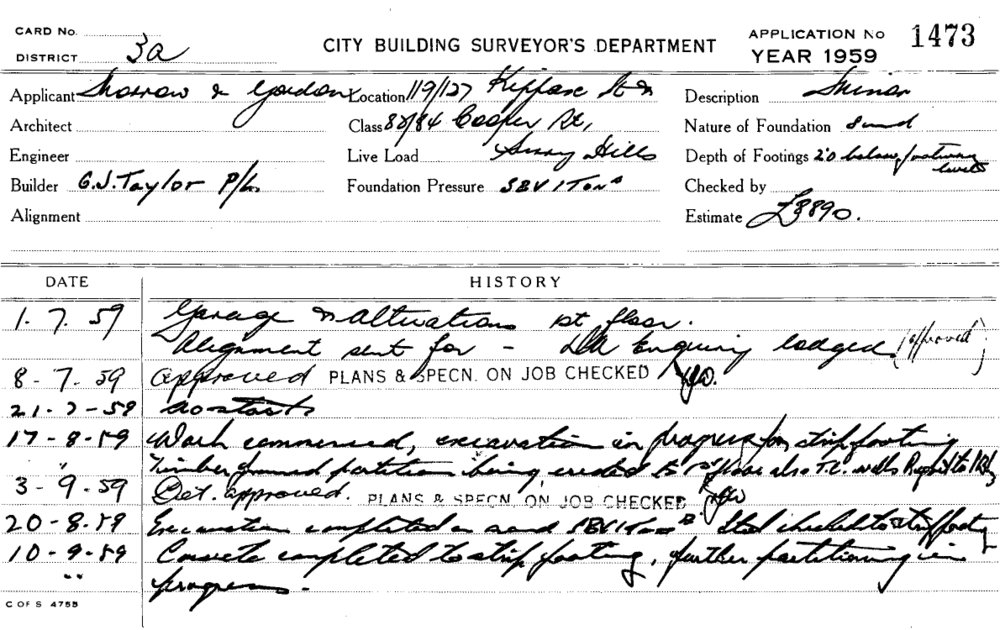 CARD No.
DISTRICT 3a
CITY BUILDING SURVEYOR'S DEPARTMENT
APPLICATION No 1473
YEAR 1959
Applicant Morrow & Gordon
Location 119/127 Kippax St &
Description Minor
Architect
Class 82/84 Cooper St,
Nature of Foundation Sand
Engineer
Live Load Surry Hills
Depth of Footings 2'0 below footway
Builder G.J. Taylor P/L.
Foundation Pressure SBV 1 Ton
Checked by
Alignment
Estimate £3890.
DATE HISTORY
1. 7. 59 Garage & alterations 1st floor.
Alignment sent for - DA Enquiry lodged (approved)
8-7.59 approved PLANS & SPECN. ON JOB CHECKED
21-7-59 no start
17-8-59 Work commenced, excavation in progress for strip footing
" Timber framed partition being erected to 1st floor also T.C. walls
3-9.59 Det. approved. PLANS & SPECN. ON JOB CHECKED
20-8-59 Excavation completed on sand SBV 1 Ton Steel checked to strip footing
10-9-59 Concrete completed to strip footing, further partitioning in
" progress.
C OF S 475B